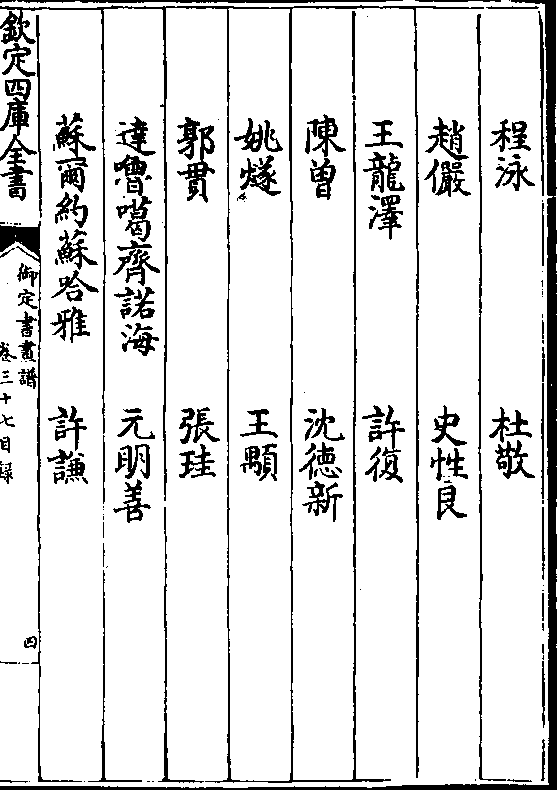 程泳　杜敬
趙儼　史性良
王龍澤　許復
陳曽　沈德新
姚燧　王顒
郭貫　張珪
達嚕噶齊諾海　元明善
蘇爾約蘇哈雅　許謙
欽定四庫全書
御定書畫譜
卷三十七目録
四